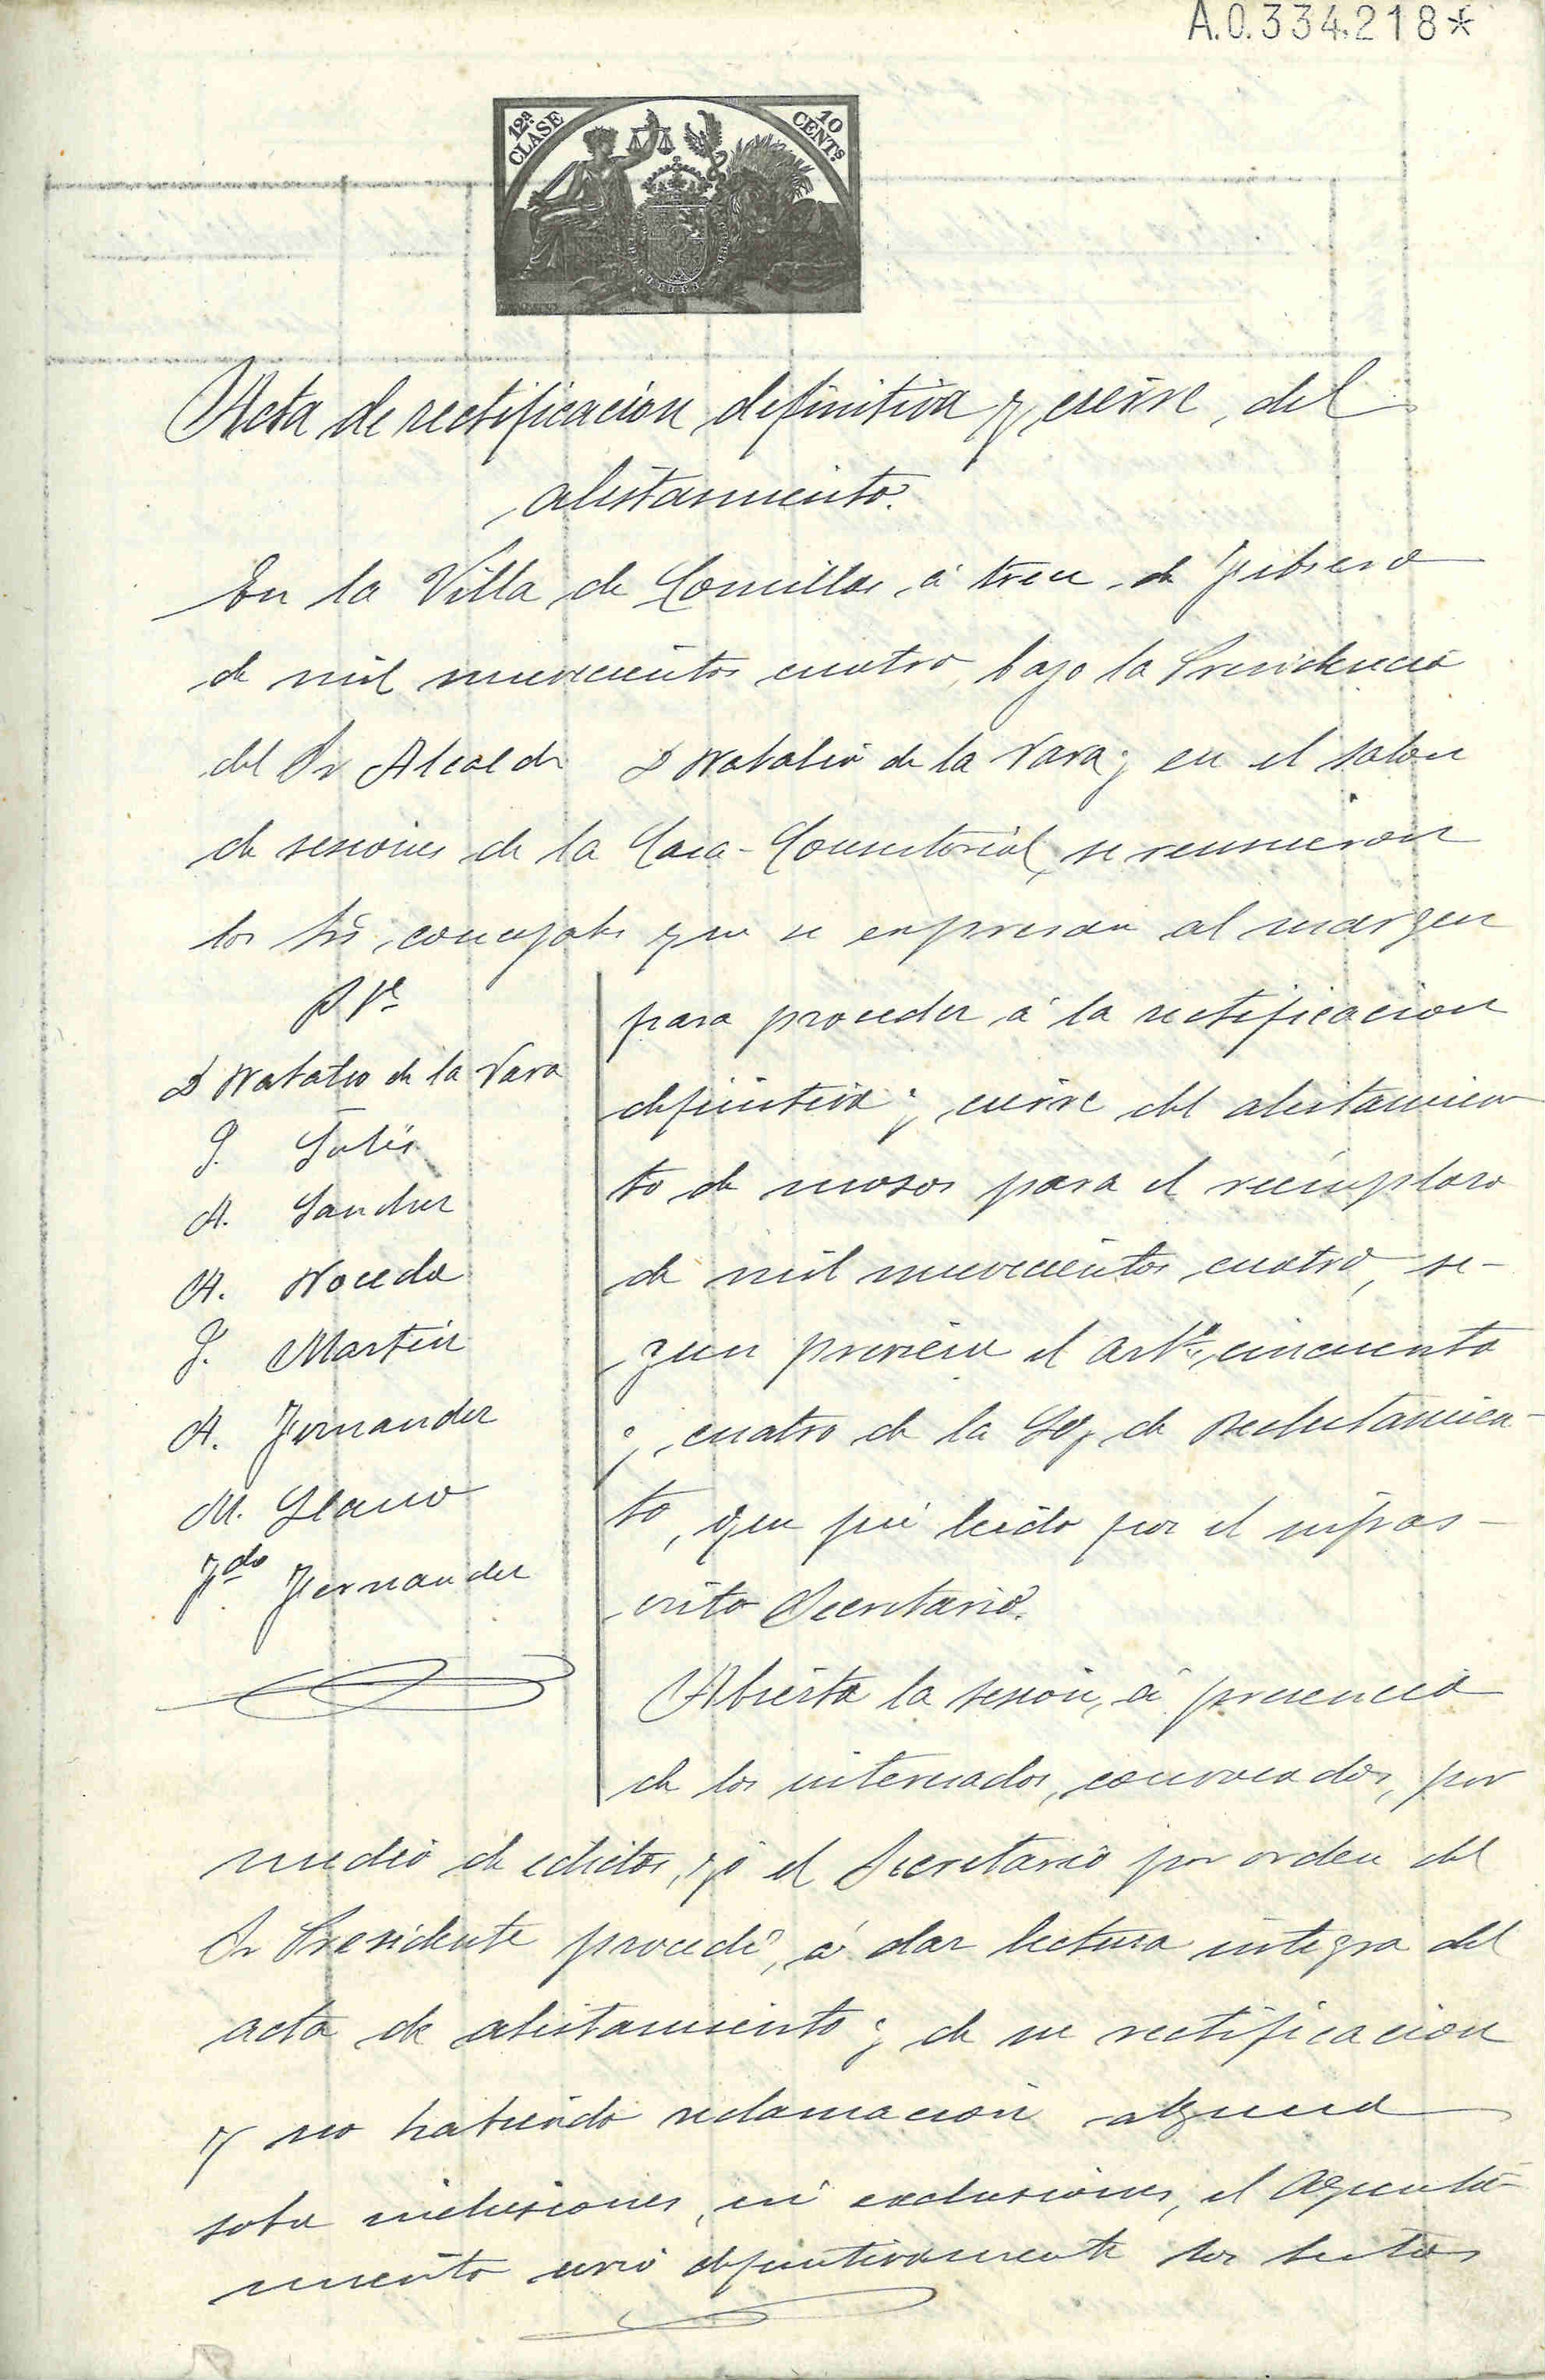 A.0.334.218*
12ª CLASE
10 CENTs
Acta de rectificación definitiva y cierre, del
alistamiento.
En la Villa de Comillas, á trece de Febrero
de mil novecientos cuatro, bajo la Presidencia
del Sr Alcalde D Natalio de la Vara y en el salon
de sesiones de la Casa-Consistorial, se reunieron
los Srs concejales que se expresan al margen
D Natalio de la Vara
J.
A. Sanchez
A. Noceda
J. Martin
A. Fernandez
M. Llano
Fdo Fernandez
para proceder á la rectificacion
definitiva y cierre del alistamien
to de mozos para el reemplazo
de mil novecientos cuatro, se-
gun previene el artº cincuenta
y cuatro de la Ley de Reclutamien-
to, que fué leido por el infras-
crito Secretario.
Abierta la sesion, á presencia
de los interesados, convocados, por
medio de edictos, yó el Secretario por orden del
Sr Presidente procedí, á dar lectura integra del
acta de alistamiento y de su rectificacion
y no habiendo reclamacion alguna
sobre inclusiones, ni exclusiones, el Ayunta-
miento cerró definitivamente las listas